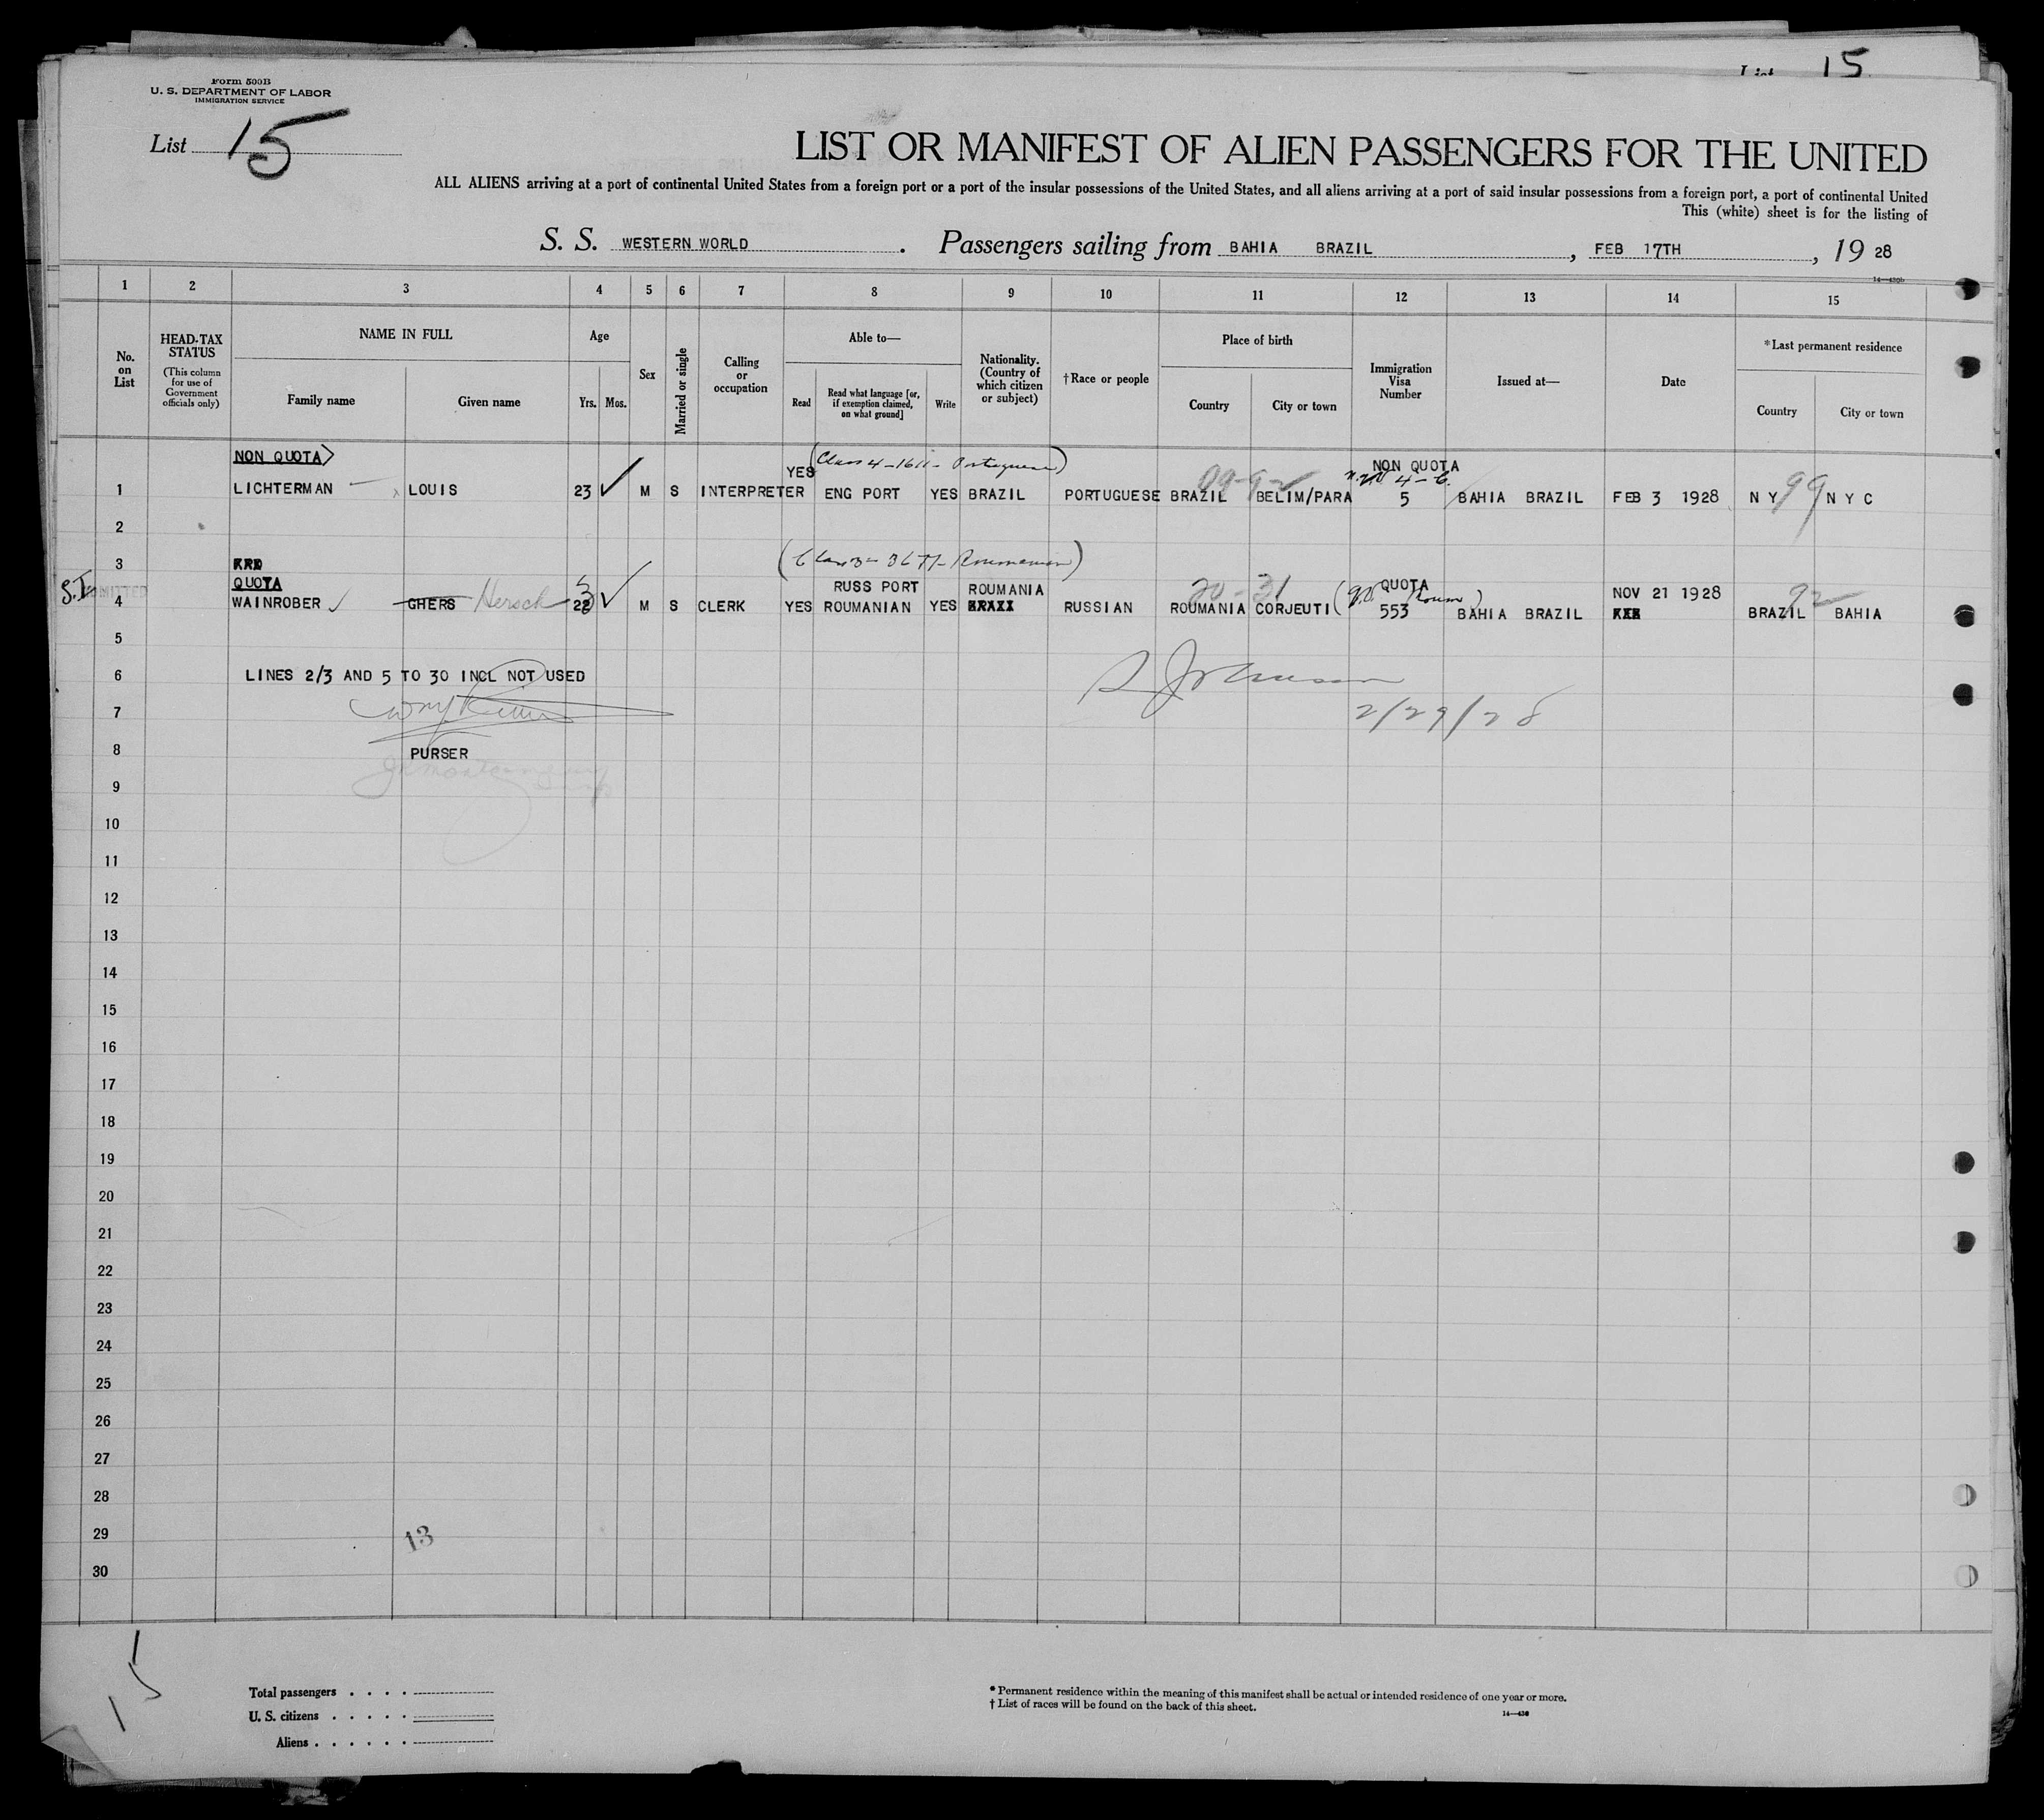 List 15
Form 500B
U. S. DEPARTMENT OF LABOR
IMMIGRATION SERVICE
List 15
LIST OR MANIFEST OF ALIEN PASSENGERS FOR THE UNITED
ALL ALIENS arriving at a port of continental United States from a foreign port or a port of the insular possessions of the United States, and all aliens arriving at a port of said insular possessions from a foreign port, a port of continental United
This (white) sheet is for the listing of
S. S. WESTERN WORLD . Passengers sailing from BAHIA BRAZIL , FEB 17TH , 19 28
14—430b
1 2 3 4 5 6 7 8 9 10 11 12 13 14 15
No. on List
HEAD-TAX STATUS
(This column for use of Government officials only)
NAME IN FULL
Family name Given name
Age
Yrs. Mos.
Sex
Married or single
Calling or occupation
Able to—
Read
Read what language [or, if exemption claimed, on what ground]
Write
Nationality. (Country of which citizen or subject)
†Race or people
Place of birth
Country City or town
Immigration Visa Number
Issued at—
Date
*Last permanent residence
Country City or town
NON QUOTA (Class 4-1611- Portuguese) NON QUOTA
4-C.
1 LICHTERMAN LOUIS 23 M S INTERPRETER YES ENG PORT YES BRAZIL PORTUGUESE BRAZIL 09-92 BELIM/PARA 5 BAHIA BRAZIL FEB 3 1928 N Y 99 N Y C
2
3 (Class 3- 3677- Roumanian)
QUOTA RUSS PORT ROUMANIA 20-31 QUOTA NOV 21 1928 92
S.I. ADMITTED 4 WAINROBER GHERS Hersch 22 3 M S CLERK YES ROUMANIAN YES RUSSIAN ROUMANIA CORJEUTI 553 BAHIA BRAZIL BRAZIL BAHIA
5
6 LINES 2/3 AND 5 TO 30 INCL NOT USED
7 2/29/28
8 PURSER
9
10
11
12
13
14
15
16
17
18
19
20
21
22
23
24
25
26
27
28
29 13
30
15
Total passengers . . . .
U. S. citizens . . . . .
Aliens . . . . . .
* Permanent residence within the meaning of this manifest shall be actual or intended residence of one year or more.
† List of races will be found on the back of this sheet.
14—430